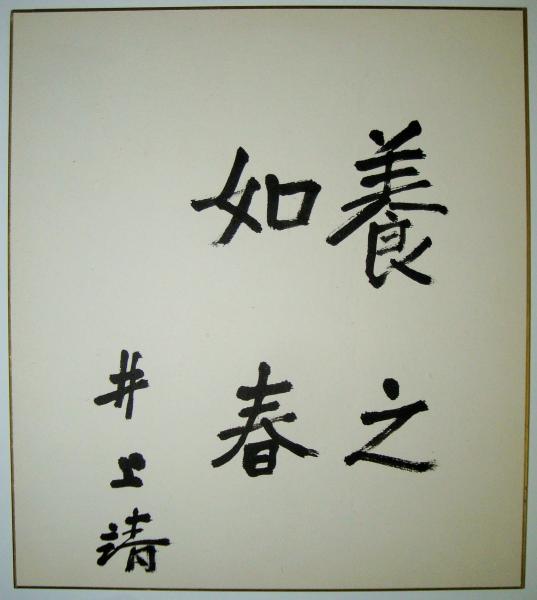 養之
如春
井上靖